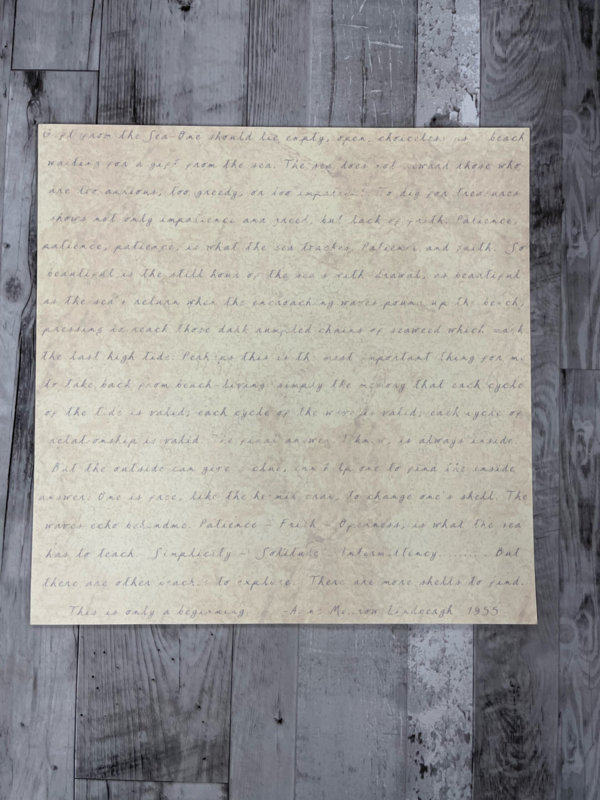 Gift from the Sea-One should lie empty, open, choiceless as beach
waiting for a gift from the sea. The sea does not reward those who
are too anxious, too greedy, or too impatient. To dig for treasures
shows not only impatience and greed, but lack of faith. Patience,
patience, patience, is what the sea teaches. Patience and faith. So
beautiful is the still hour of the sea's withdrawal, as beautiful
as the sea's return when the encroaching waves pound up the beach,
pressing to reach those dark rumpled chains of seaweed which mark
the last high tide. Perhaps this is the most important thing for me
to take back from beach-living: simply the memory that each cycle
of the tide is valid; each cycle of the wave is valid; each cycle of
relationship is valid. The final answer, I know, is always inside.
But the outside can give a clue, can help one to find the inside
answer. One is free, like the hermit crab, to change one's shell. The
waves echo behind me. Patience - Faith - Openness, is what the sea
has to teach. Simplicity - Solitude - Intermittency ........ But
there are other beaches to explore. There are more shells to find.
This is only a beginning. -Anne Morrow Lindbergh 1955